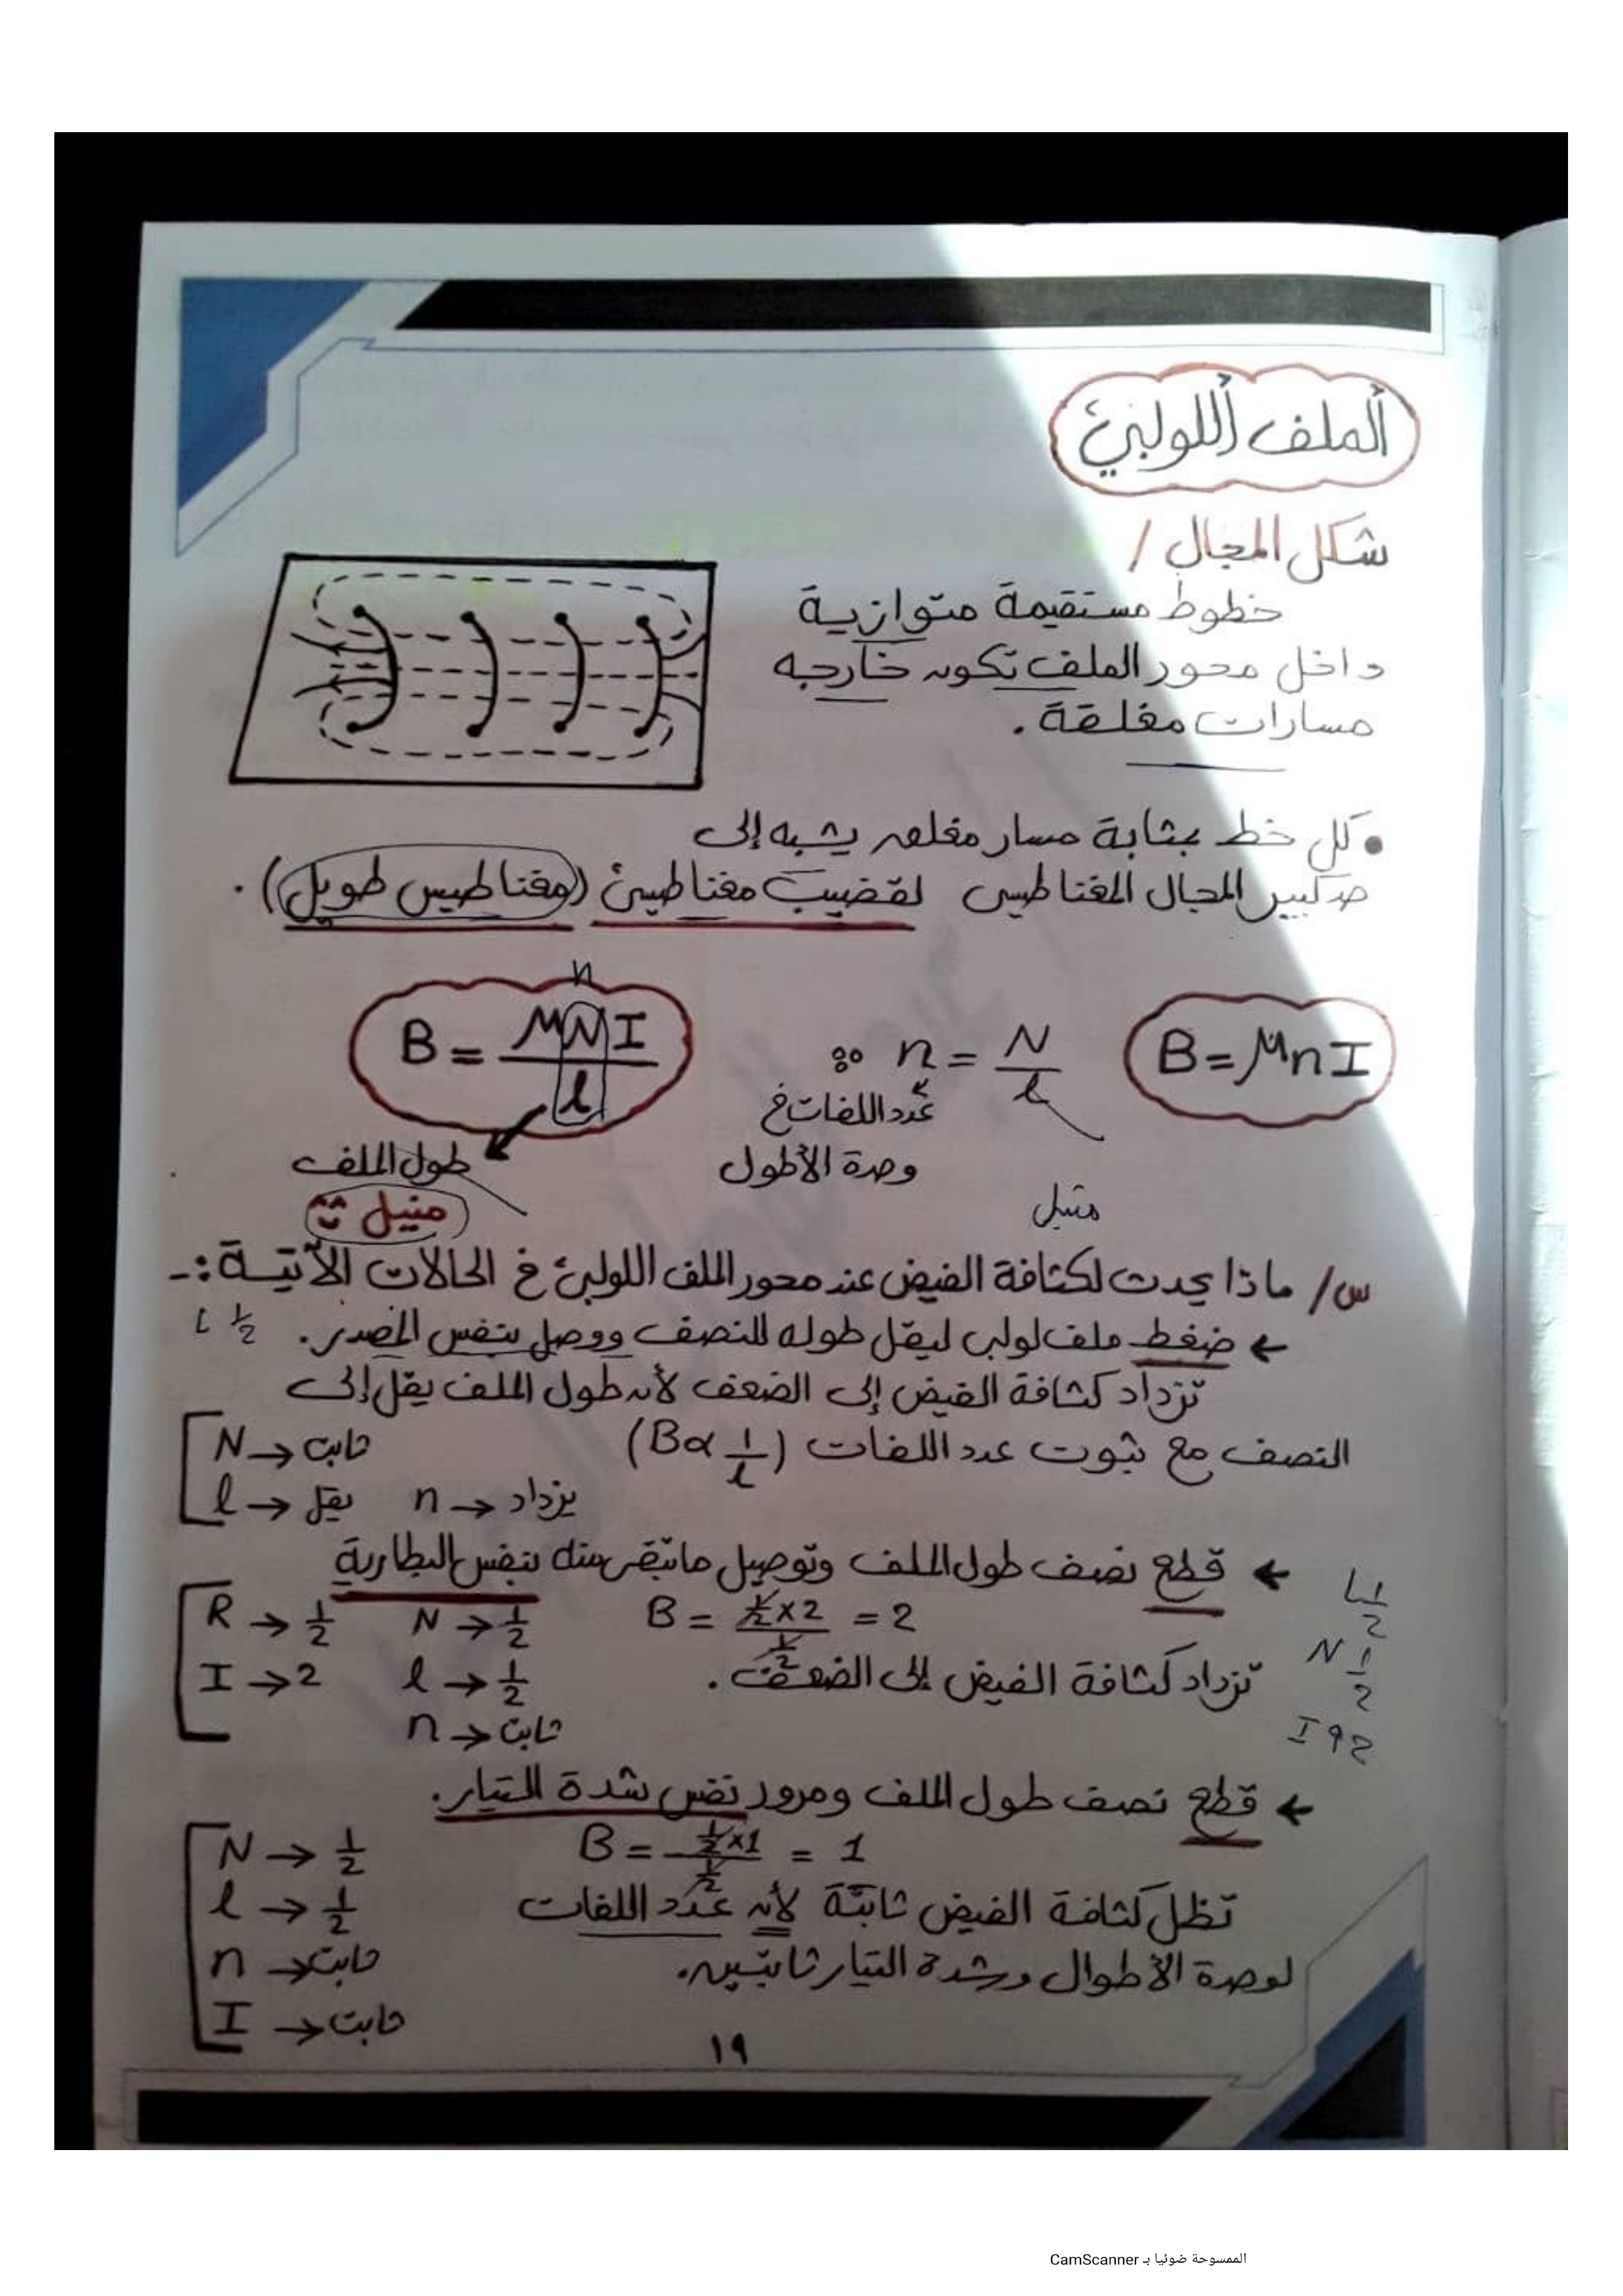 الملف اللولبي
شكل المجال /
خطوط مستقيمة متوازية
داخل محور الملف تكون خارجه
مسارات مغلقة .
• كل خط بمثابة مسار مغلق يشبه إلى
حد كبير المجال المغناطيسى لقضيب مغناطيسي (مغناطيس طويل) .
B = μnI
∵ n = N/l
B = μNI/l
n
عدد اللفات في
وحدة الأطول
طول الملف
متر
س/ ماذا يحدث لكثافة الفيض عند محور الملف اللولبي في الحالات الآتية :-
← ضغط ملف لولبى ليقل طوله للنصف ووصل بنفس المصدر .
L ½
تزداد كثافة الفيض إلى الضعف لأن طول الملف يقل إلى
النصف مع ثبوت عدد اللفات (B∝ 1/l)
N → ثابت
l → يقل n → يزداد
← قطع نصف طول الملف وتوصيل ماتبقى منه بنفس البطارية
L ½
N ½
R → ½ N → ½
B = ½×2 / ½ = 2
I → 2 l → ½
تزداد كثافة الفيض إلى الضعف .
n → ثابت
← قطع نصف طول الملف ومرور نفس شدة التيار.
N → ½
B = ½×1 / ½ = 1
l → ½
تظل كثافة الفيض ثابتة لأن عدد اللفات
n → ثابت
لوحدة الأطوال وشدة التيار ثابتين.
I → ثابت
١٩
الممسوحة ضوئيا بـ CamScanner